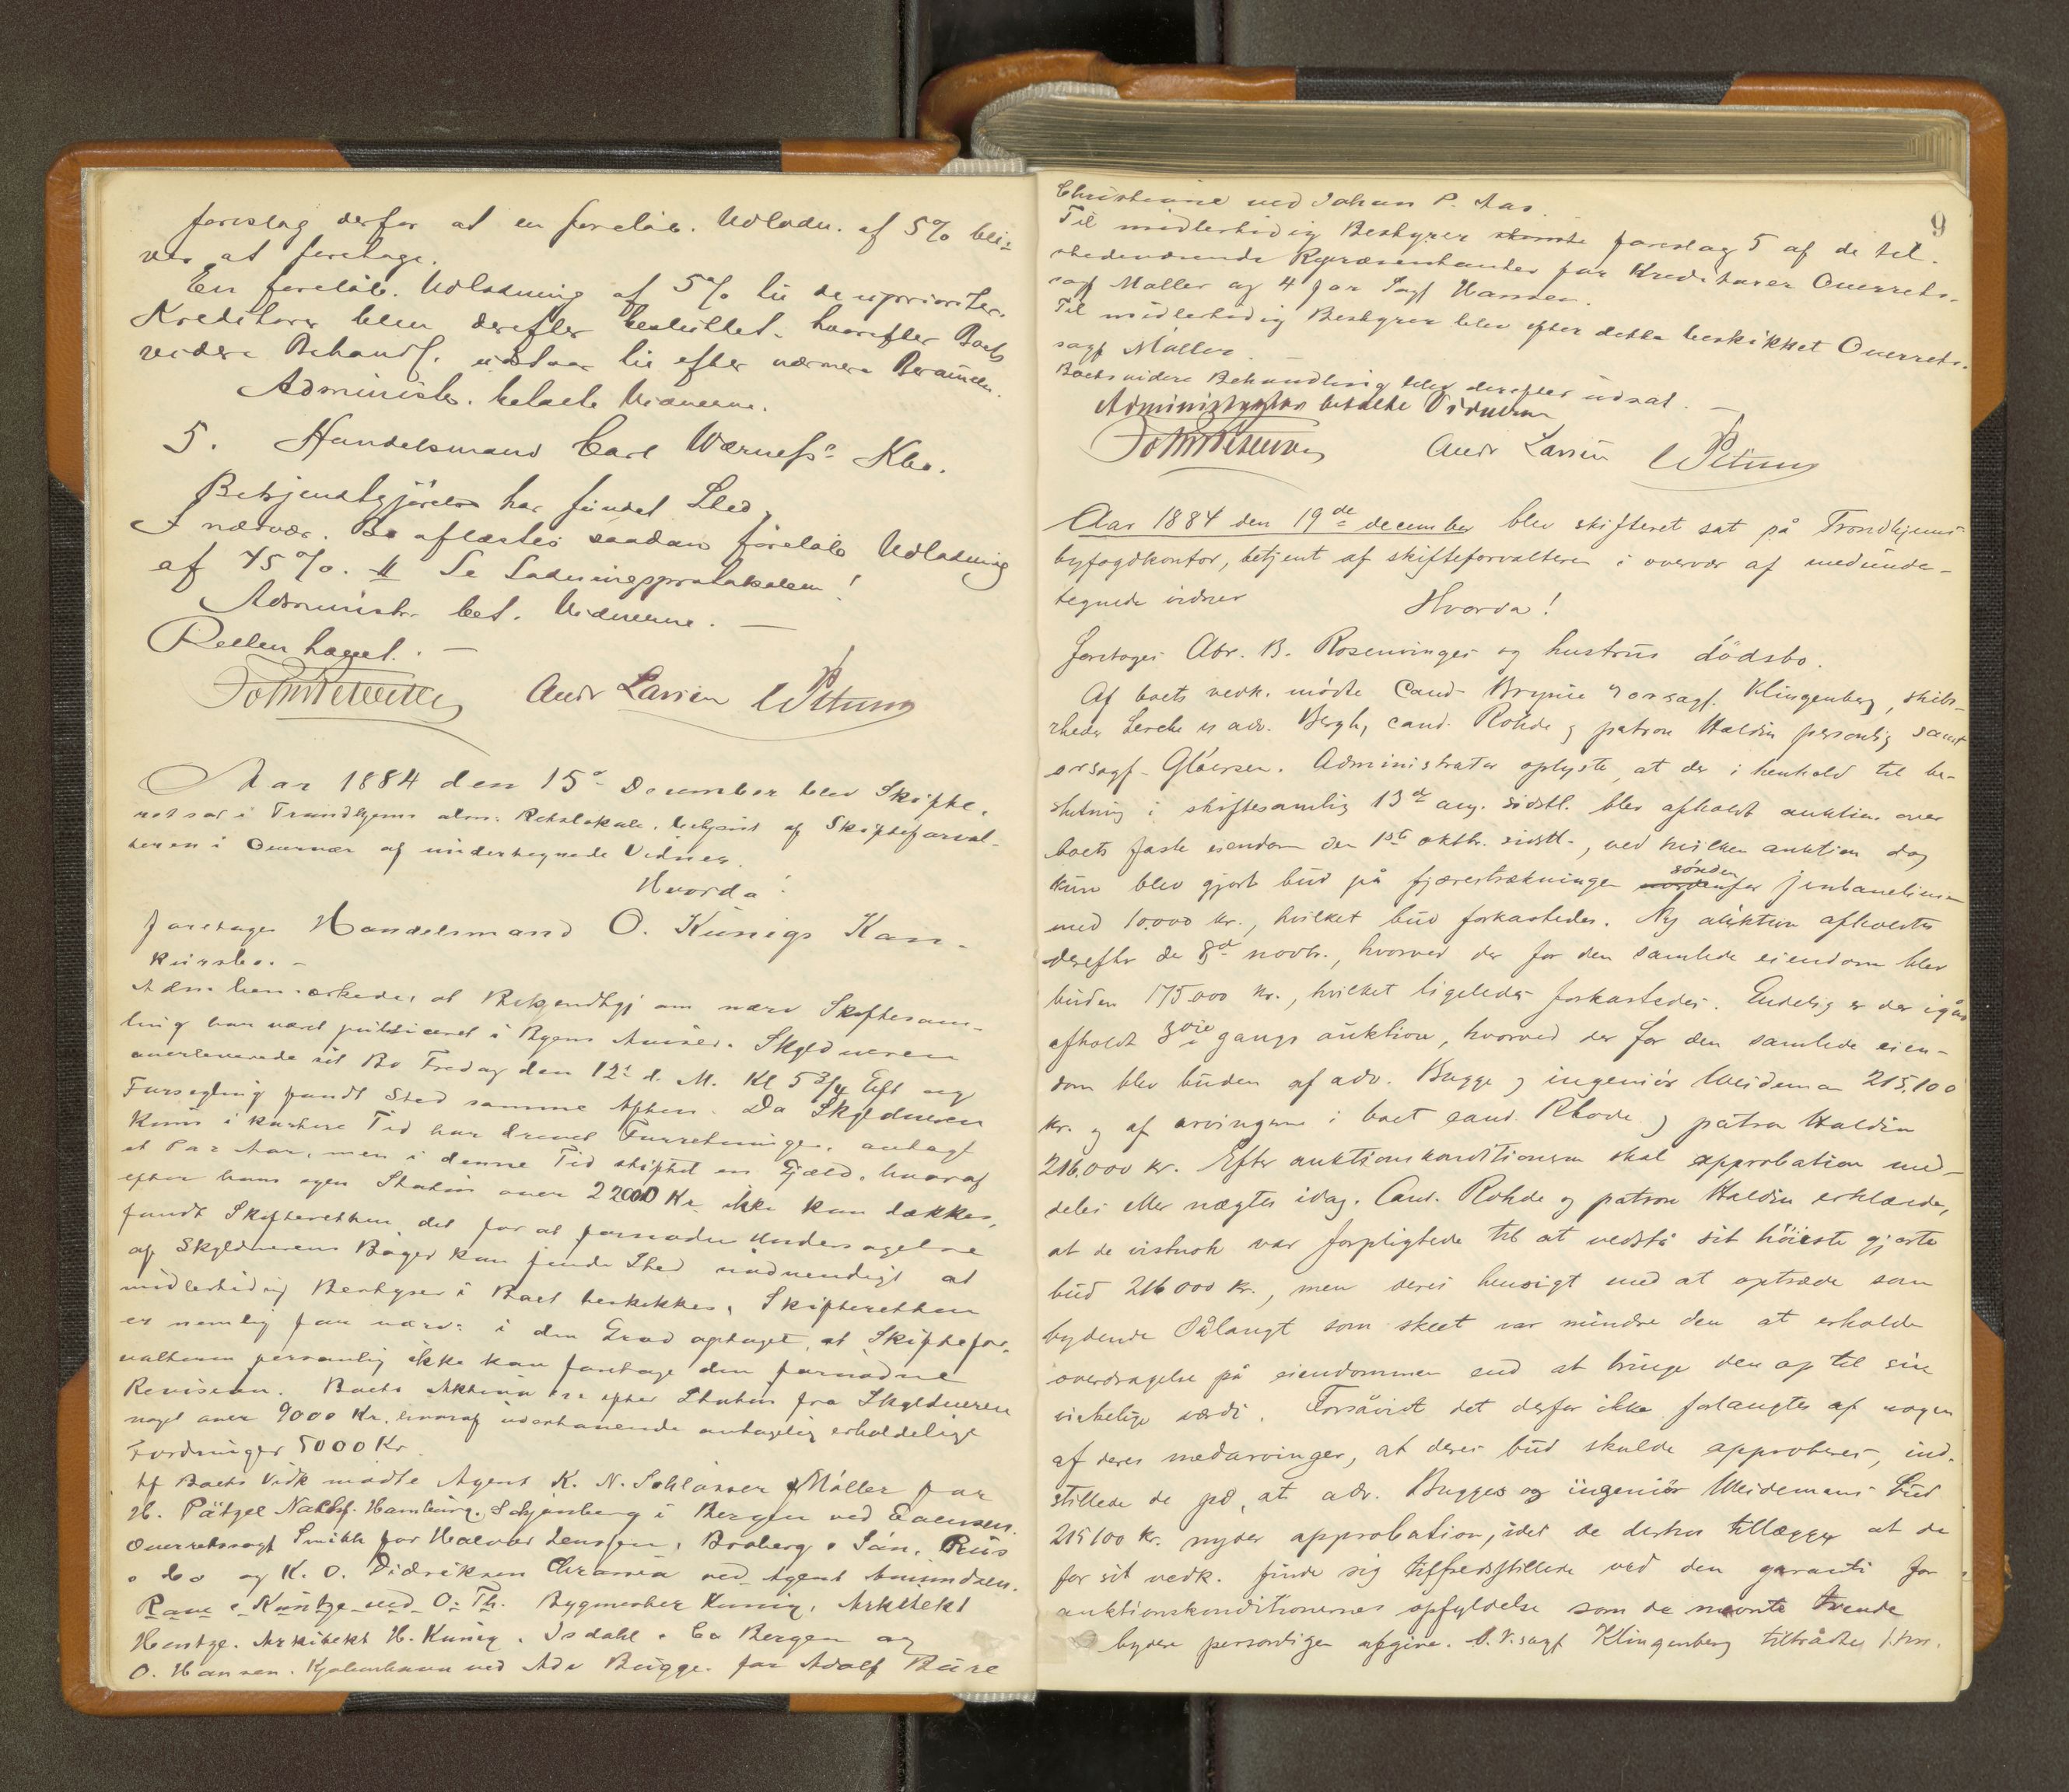 foreslog derfor at en foreløb. Udlodn. af 5% bli-
ver at foretage.
En foreløb. Udlodning af 5% til de uprioriter.
Kreditorer blev derefter besluttet. hvorefter Boets
videre Behandl. udstaar til efter nærmere Berammelse.
Administr. betalte Vidnerne.
5. Handelsmand Carl Wærness' Kbo.
Bekjendtgjørelse har fundet Sted,
I nædvær. Bo aflæstes saadan foreløb Udlodning
af 45%. Se Lodningsprotokolen!
Administr. bet. Vidnerne. —
Retten hævet. —
Andr Larsen
Aar 1884 den 15de December blev Skifte-
ret sat i Trondhjems alm. Retslokale, betjent af Skifteforval-
teren i Overvær af undertegnede Vidner.
Hvorda!
foretages Handelsmand O. Künigs Kon-
kursbo. –
Adm. bemærkede, at Bekjendtgj om nærv Skiftesam-
ling har været publiceret i Byens Aviser. Skyldneren
overleverede sit Bo Fredag den 12te d. M. Kl 5 3/4 Eft og
Forsegling fandt Sted samme Aften. Da Skyldneren
kun i kortere Tid har drevet Forretninger, antagl
et Par Aar, men i denne Tid stiftet en Gjæld, hvoraf
efter hans egen Status over 22000 Kr ikke kan dækkes,
fandt Skifteretten det for at fornøden Undersøgelse
af Skyldnerens Bøger kan finde Sted nødvendigt at
midlertidig Bestyrer i Boet beskikkes, Skifteretten
er nemlig for nærv: i den Grad optaget, at Skiftefor-
valteren personlig ikke kan foretage den fornødne
Revision. Boets Aktiva er efter Status fra Skyldneren
noget over 9000 Kr, hvoraf udestaaende antagelig erholdelige
Fordringer 5000 Kr
Af Boets Vedk mødte Agent K. N. Schlösser & Møller for
H. Pätzel Nachf. Hamburg. Schjenberg i Bergen ved
Overretssagf Smith for Halvor Jenssen, Broberg & Søn, Rüs
& Co og K. O. Didriksen Chrania ved Agent Amundsen.
Raue & Kuntze ved O. Th. Bygmester Kunig, Arkitekt
Hentze. Arkitekt H. Kunig, Isdahl & Co Bergen og
O. Hansen. Kjøbenhavn ved Adv Bugge. for Adolf Bure
9
Christiania ved Johan P. Aas.
Til midlertidig Bestyrer foreslog 5 af de til-
stedeværende Repræsentanter for Kreditorer Overrets-
sagf Møller og 4 for Sagf Hansen.
Til midlertidig Bestyrer blev efter dette beskikket Overrets-
sagf Møller. —
Boets videre Behandling blev derefter udsat. —
Administrator betalte Vidnerne
Andr Larsen
Aar 1884 den 19de december blev skifteret sat på Trondhjems
byfogdkontor, betjent af skifteforvalteren i overvær af medunde-
tegnede vidner
Hvorda!
Foretoges Abr. B. Rosenvinges og hustrus dødsbo.
Af boets vedk. mødte Cand. Brynie v orsagf. Klingenberg, skibs-
rheder Lerche v adv. Bergh, cand. Rohde og patron Haldin personlig samt
orsagf. Gløersen. Administrator oplyste, at der i henhold til be-
slutning i skiftesamling 13de aug. sidstl. blev afholdt auktion over
boets faste eiendom den 1ste oktbr. sidstl., ved hvilken auktion dog
kun blev gjort bud på fjærestrækningen nordenfor sønden jernbanelinien
med 10.000 kr., hvilket bud forkastedes. Ny auktion afholdtes
derefter den 8de novbr., hvorved der for den samlede eiendom blev
buden 175.000 kr., hvilket ligeledes forkastedes. Endelig er der igår
afholdt 3die gangs auktion, hvorved der for den samlede eien-
dom blev buden af adv. Bugge og ingeniør Weideman 215,100
kr. og af arvingerne i boet cand. Rhode og patron Haldin
216.000 kr. Efter auktionskonditionerne skal approbation med-
deles eller nægtes idag. Cand. Rohde og patron Haldin erklærede,
at de vistnok var forpligtede til at vedstå sit høieste gjorte
bud 216 000 kr., men deres hensigt med at optræde som
bydende sålangt som skeet var mindre den at erholde
overdragelse på eiendommen end at bringe den op til sin
virkelige værdi. Forsåvidt det derfor ikke forlangtes af nogen
af deres medarvinger, at deres bud skulde approberes, ind-
stillede de på, at adv. Bugges og ingeniør Weidemans bud
215100 kr. nyder approbation, idet de derhos tillægger at de
for sit vedk. finde sig tilfredsstillede ved den garanti for
auktionskonditionernes opfyldelse som de nævnte tvende
bydere personligen afgive. O.r.sagf Klingenberg tiltrådte